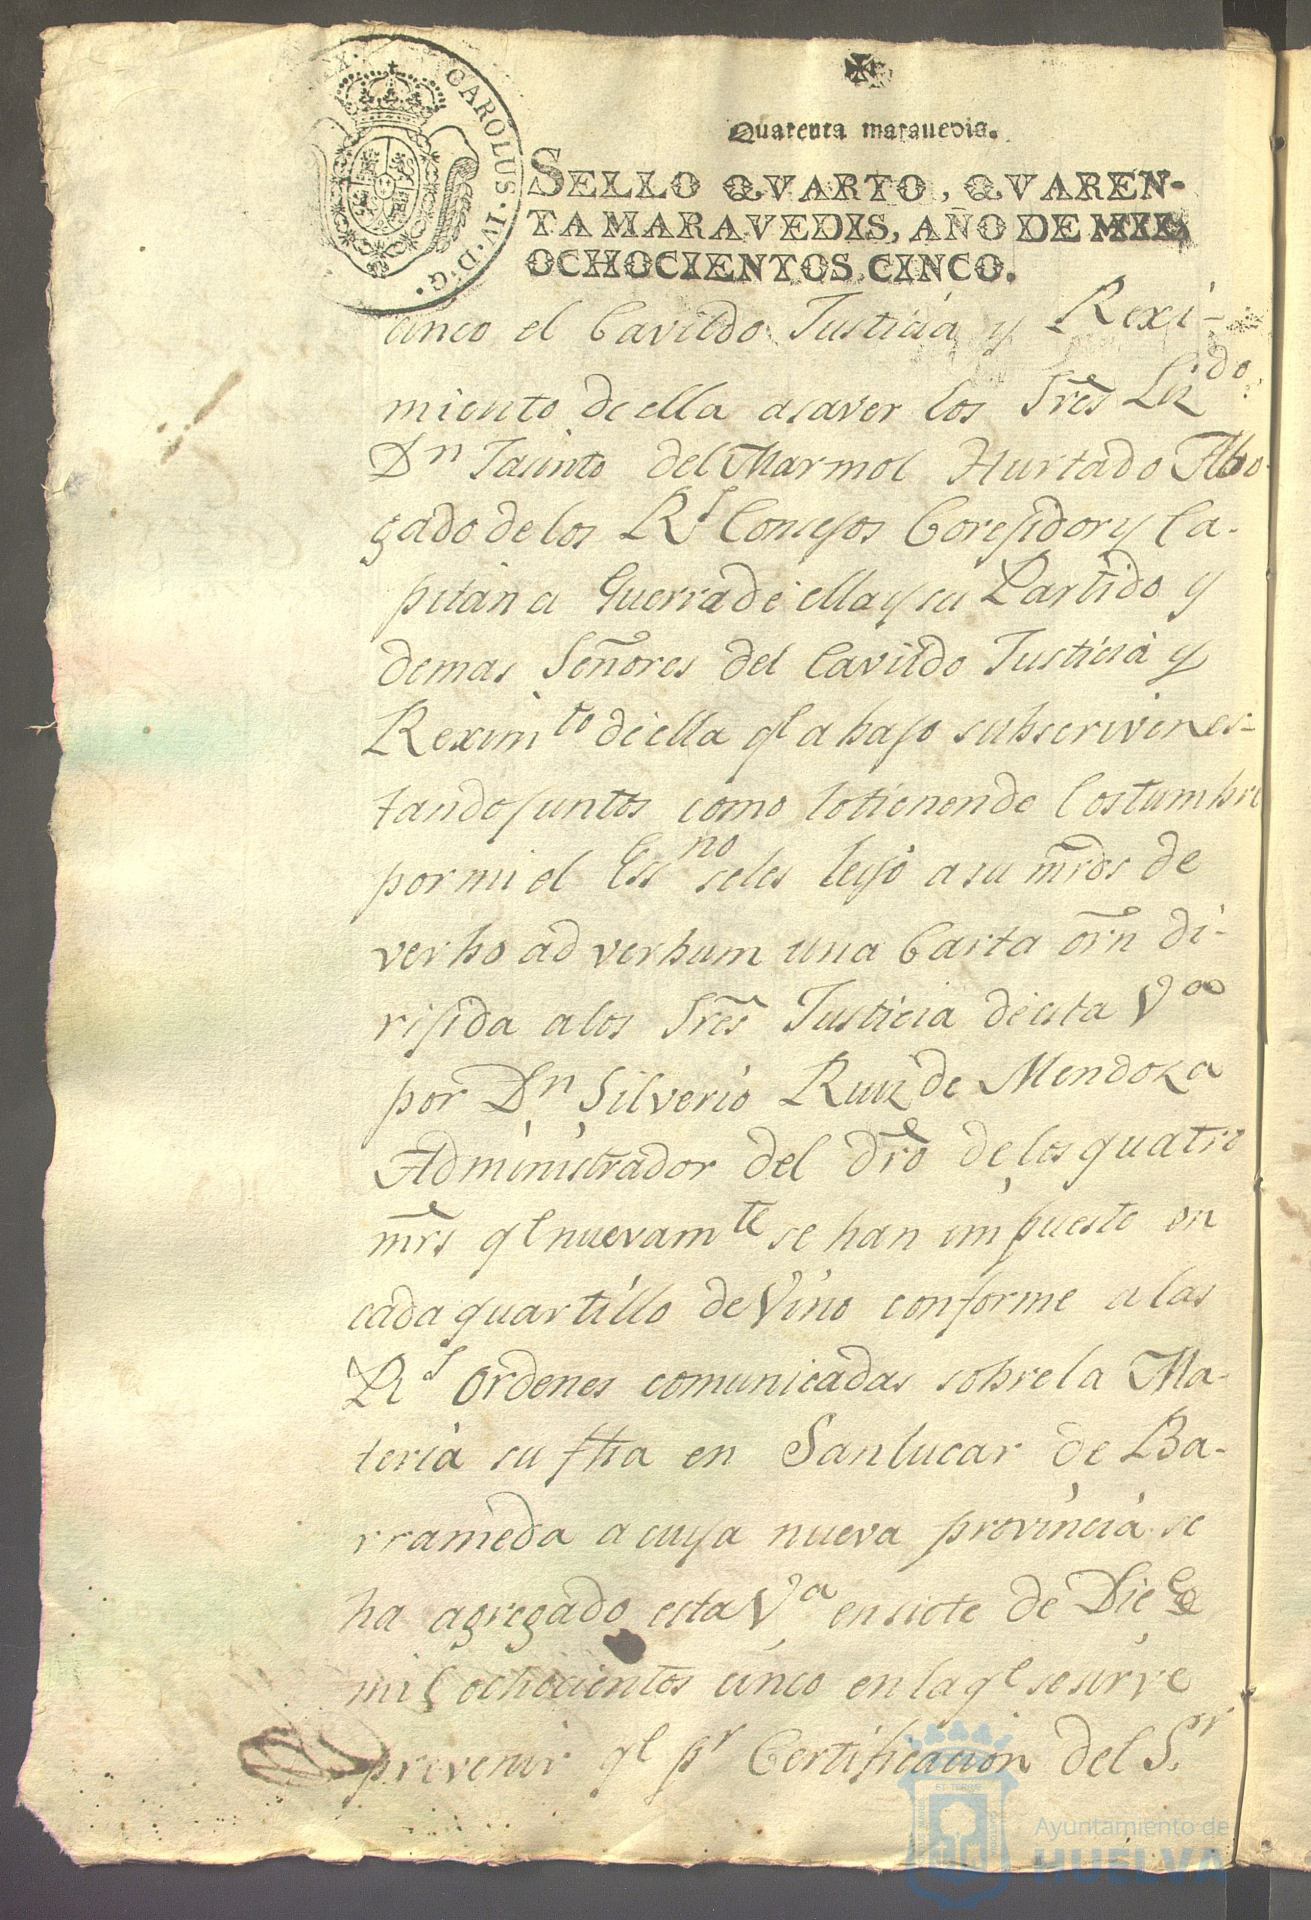 CAROLUS · IV · D · G ·
Quarenta maravedis.
SELLO QVARTO, QVAREN-
TA MARAVEDIS, AÑO DE MIL
OCHOCIENTOS CINCO.
cinco el Cavildo Justicia y Rexi-
miento de ella asaver los Sres Lizdo.
Dn Jasinto del Marmol Hurtado Abo-
gado de los Rs Consejos Corejidor y Ca-
pitan a Guerra de ella y su Partido y
demas Señores del Cavildo Justicia y
Reximto de ella qe abajo subscriven es-
tando juntos como lo tienen de Costumbre
por mi el Essno seles leyó a su mrds de
verbo ad verbum una Carta orn di-
rijida a los Sres Justicia de esta Va
por Dn Silverio Ruiz de Mendoza
Administrador del dro de los quatro
mrs qe nuevamte se han impuesto en
cada quartillo de Vino conforme a las
Rs Ordenes comunicadas sobre la Ma-
teria su fha en Sanlucar de Ba-
rrameda a cuya nueva provincia se
ha agregado esta Va en siete de Dice
mil ochocientos cinco en la qe se sirve
prevenir qe pr Certificacion del Sr.
Ayuntamiento de
HUELVA